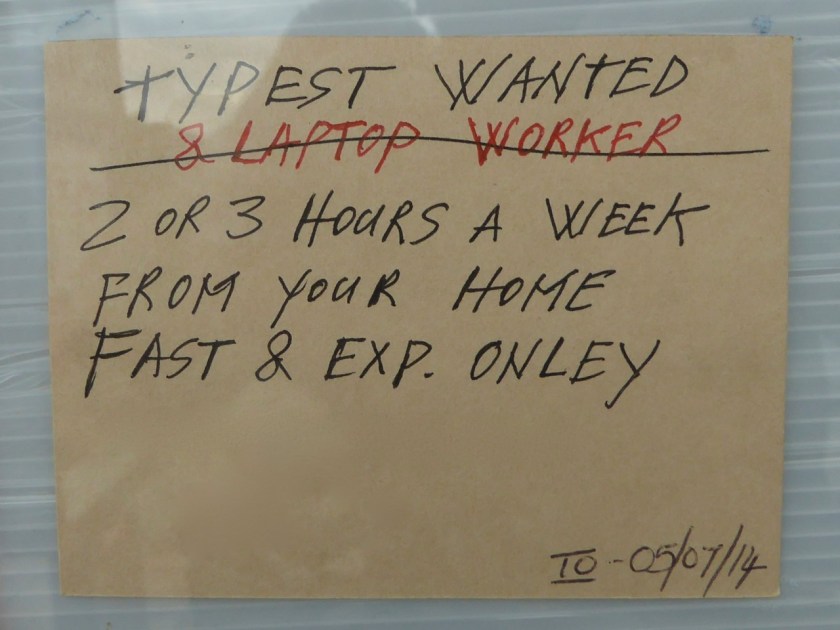 TYPEST WANTED
& LAPTOP WORKER
2 OR 3 HOURS A WEEK
FROM YOUR HOME
FAST & EXP. ONLEY
TO - 05/07/14